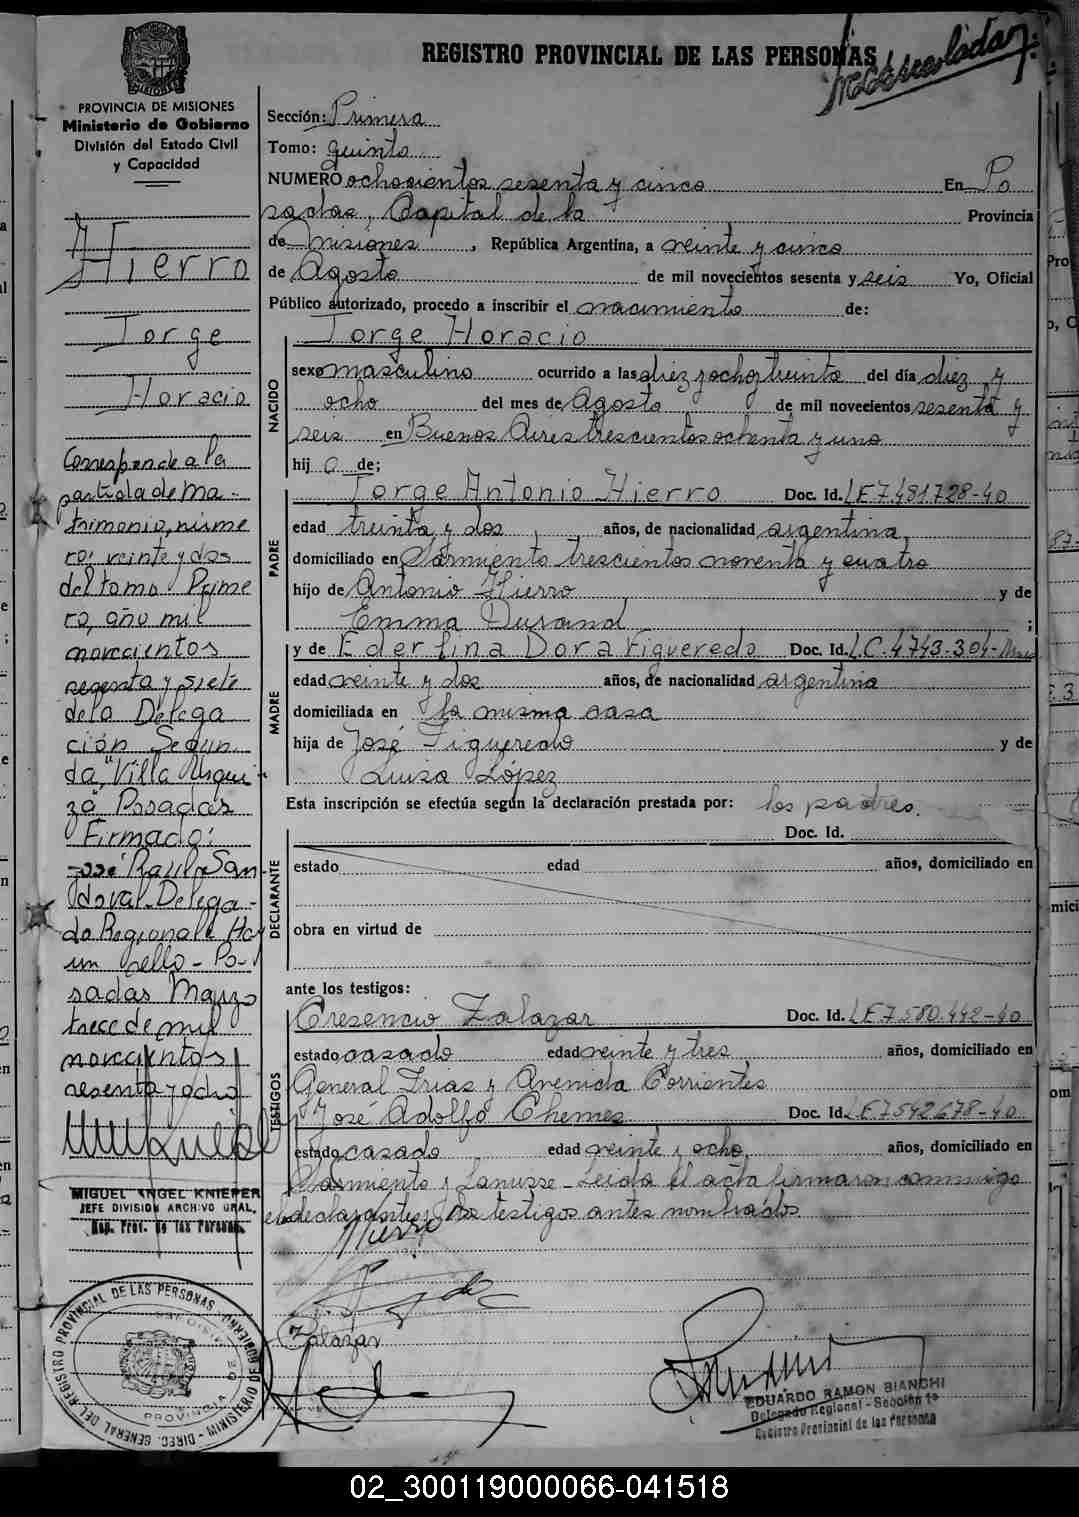 REGISTRO PROVINCIAL DE LAS PERSONAS
PROVINCIA DE MISIONES
Ministerio de Gobierno
División del Estado Civil
y Capacidad
Hierro
Jorge
Horacio
Corresponde a la
partida de ma-
trimonio, núme
ro: veinte y dos
del tomo Prime
ro, año mil
novecientos
sesenta y siete
de la Delega
ción Segun
da, "Villa Urqui
za" Posadas
Firmado:
José Raul San
doval-Delega-
do Regional. Hay
un sello-Po-
sadas Marzo
trece de mil
novecientos
sesenta y ocho
MIGUEL ANGEL KNIEPER
JEFE DIVISION ARCHIVO GRAL.
Reg. Prov. de las Personas
DIREC. GENERAL DEL REGISTRO PROVINCIAL DE LAS PERSONAS - MINISTERIO DE GOBIERNO
PROVINCIA DE
Sección: Primera
Tomo: quinto
NUMERO ochocientos sesenta y cinco En Po
sadas, Capital de la Provincia
de Misiones, República Argentina, a veinte y cinco
de Agosto de mil novecientos sesenta y seis Yo, Oficial
Público autorizado, procedo a inscribir el nacimiento de:
Jorge Horacio
NACIDO
sexo masculino ocurrido a las diez y ocho y treinta del día diez y
ocho del mes de Agosto de mil novecientos sesenta y
seis en Buenos Aires trescientos ochenta y uno
hij o de;
PADRE
Jorge Antonio Hierro Doc. Id. LE 7.481.728-40
edad treinta y dos años, de nacionalidad argentina,
domiciliado en Sarmiento trescientos noventa y cuatro
hijo de Antonio Hierro y de
Emma Durand ;
MADRE
y de Ederlina Dora Figueredo Doc. Id. L.C. 4743-304-
edad veinte y dos años, de nacionalidad argentina
domiciliada en la misma casa
hija de José Figueredo y de
Luisa López
Esta inscripción se efectúa según la declaración prestada por: los padres.
Doc. Id.
DECLARANTE
estado edad años, domiciliado en
obra en virtud de
ante los testigos:
TESTIGOS
Cresencio Zalazar Doc. Id. LE 7580.442-40
estado casado edad veinte y tres años, domiciliado en
General Frias y Avenida Corrientes
José Adolfo Chemes Doc. Id. LE 7542678-40
estado casado edad veinte y ocho, años, domiciliado en
Sarmiento y Lanusse-Leida el acta firmaron conmigo
el declarantes y los testigos antes nombrados
Hierro
Zalazar
EDUARDO RAMON BIANCHI
Delegado Regional - Sección 1ª
Registro Provincial de las Personas
02_300119000066-041518